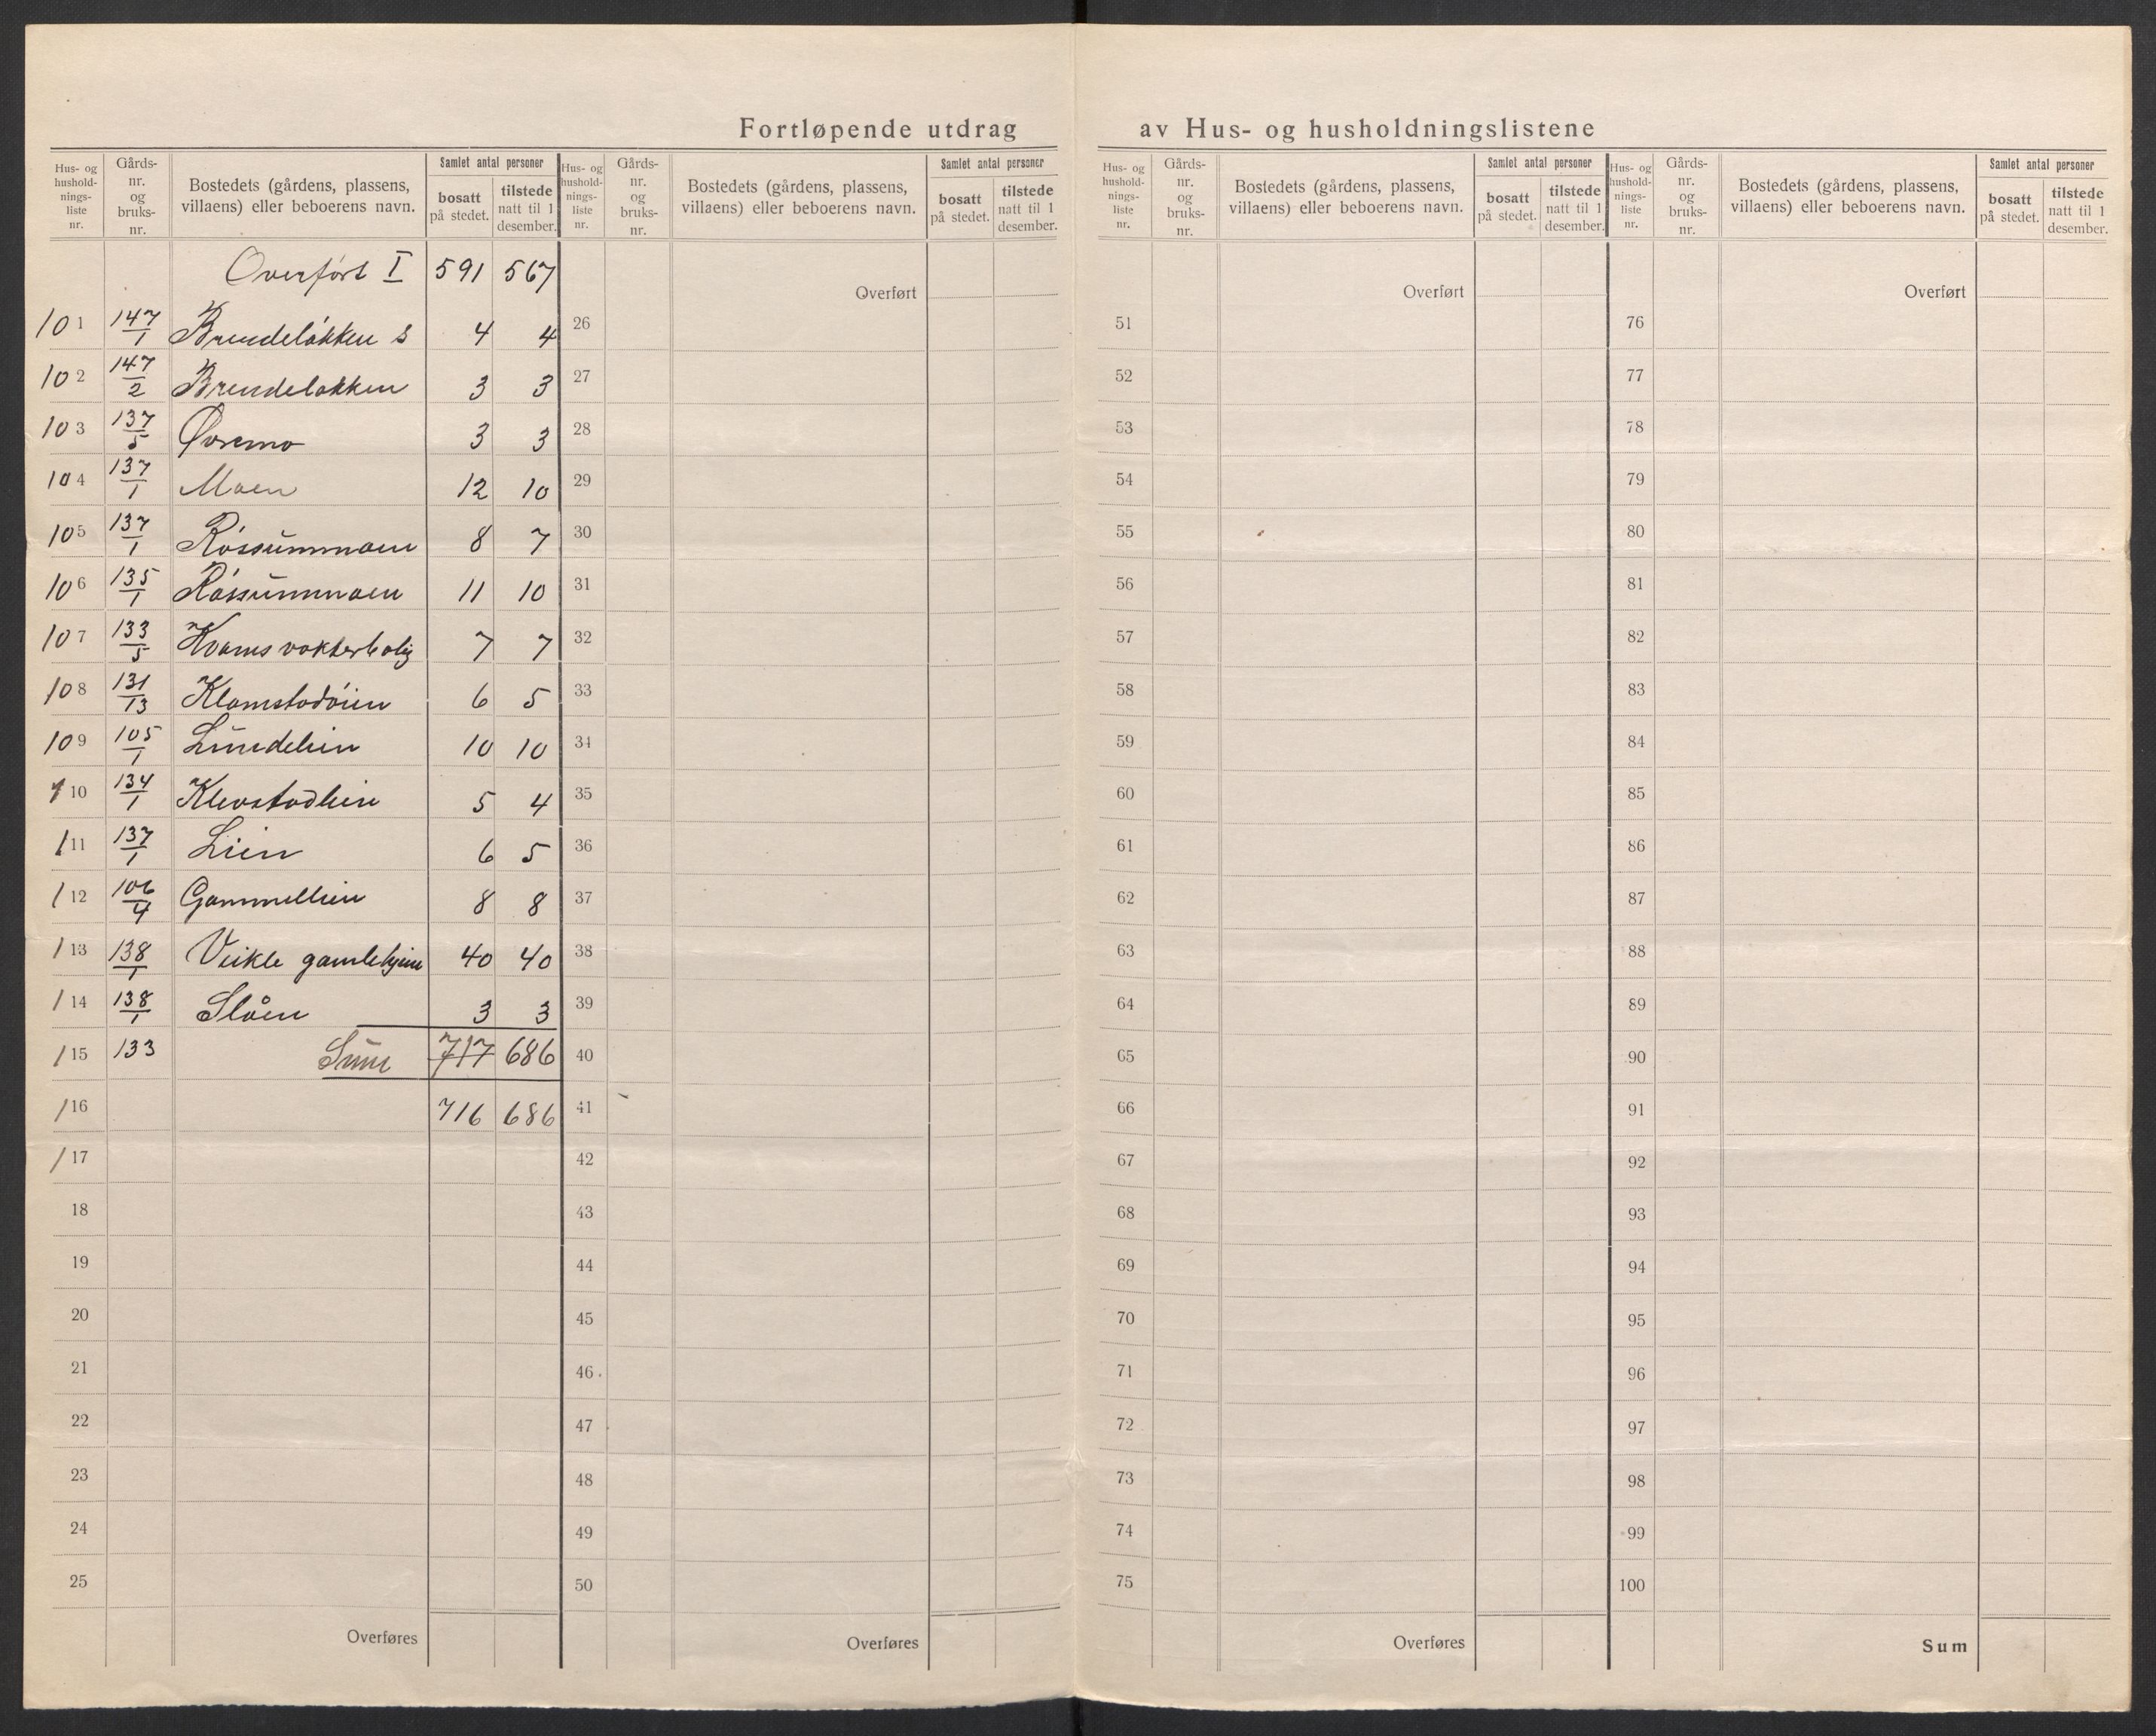 Fortløpende utdrag av Hus- og husholdningslistene
Hus- og hushold- nings- liste nr. | Gårds- nr. og bruks- nr. | Bostedets (gårdens, plassens, villaens) eller beboerens navn. | Samlet antal personer | bosatt på stedet. | tilstede natt til 1 desember.
Overført I 591 567
101 147/1 Brendeløkken s 4 4
102 147/2 Brendeløkken 3 3
103 137/5 Øvremo 3 3
104 137/1 Moen 12 10
105 137/1 Røssummoen 8 7
106 135/1 Røssummoen 11 10
107 133/5 Kvams vokterbolig 7 7
108 131/13 Klomstadøien 6 5
109 105/1 Lundelien 10 10
110 134/1 Klevstadlien 5 4
111 137/1 Lien 6 5
112 106/4 Gammellien 8 8
113 138/1 Veikle gamlehjem 40 40
114 138/1 Slåen 3 3
115 133 Sum 717 686
116 716 686
117
18
19
20
21
22
23
24
25
Overføres
Hus- og hushold- nings- liste nr. | Gårds- nr. og bruks- nr. | Bostedets (gårdens, plassens, villaens) eller beboerens navn. | Samlet antal personer | bosatt på stedet. | tilstede natt til 1 desember.
Overført
26
27
28
29
30
31
32
33
34
35
36
37
38
39
40
41
42
43
44
45
46
47
48
49
50
Overføres
Hus- og hushold- nings- liste nr. | Gårds- nr. og bruks- nr. | Bostedets (gårdens, plassens, villaens) eller beboerens navn. | Samlet antal personer | bosatt på stedet. | tilstede natt til 1 desember.
Overført
51
52
53
54
55
56
57
58
59
60
61
62
63
64
65
66
67
68
69
70
71
72
73
74
75
Overføres
Hus- og hushold- nings- liste nr. | Gårds- nr. og bruks- nr. | Bostedets (gårdens, plassens, villaens) eller beboerens navn. | Samlet antal personer | bosatt på stedet. | tilstede natt til 1 desember.
Overført
76
77
78
79
80
81
82
83
84
85
86
87
88
89
90
91
92
93
94
95
96
97
98
99
100
Sum